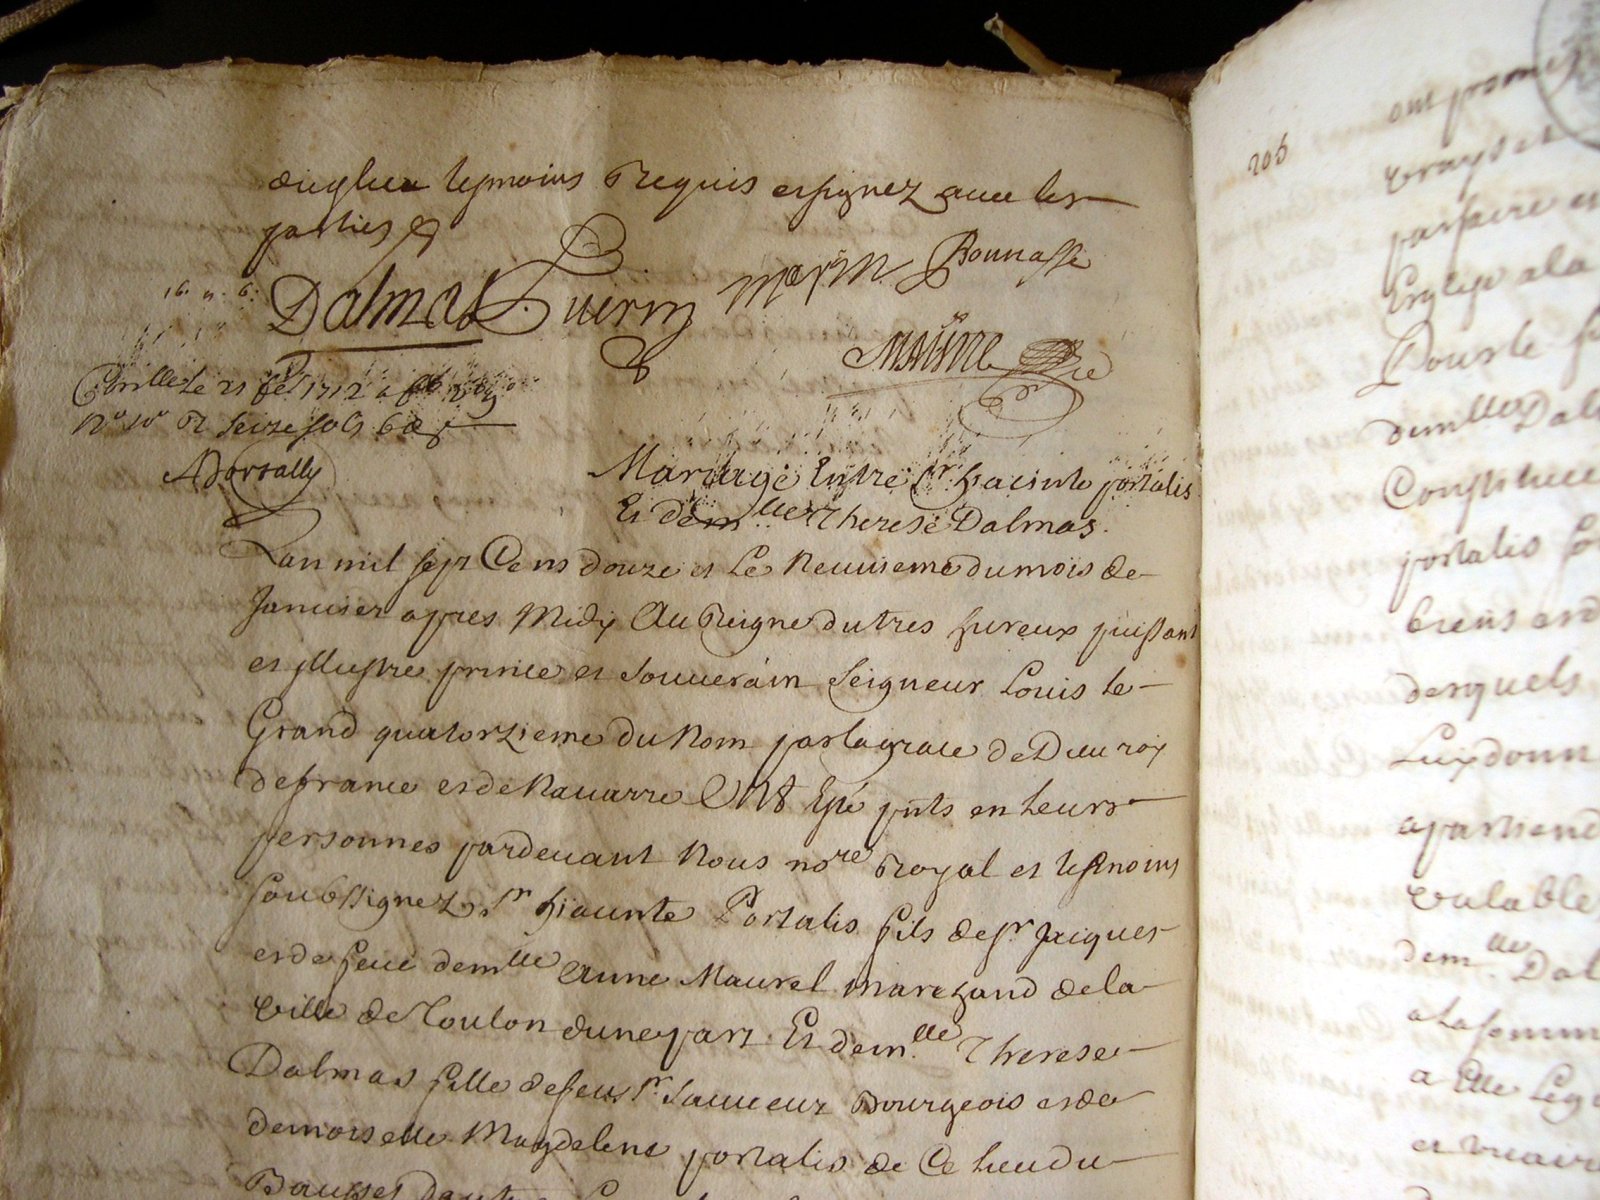 temoins Requis et signez avec les
parties
Dalmas Guerin Bonnasse
Maurre
le 21 1712
seize sols 6 d
Mariage Entre Sr hiacinte portalis
Et demlle Therese Dalmas.
Lan mil sept Cens douze et Le Neuuieme du mois de
Januier apres Midy Au Reigne du tres hureux puissant
et Illustre prince et souuerain seigneur Louis le
Grand quatorzieme du Nom par la grace de Dieu roy
de france et de Nauarre Ont Esté pnts en leurs
personnes pardeuant Nous nore Royal et tesmoins
soubssignez, sr hiacinte Portalis fils de sr Jacques
et de feue demlle Anne Maurel marchand de la
Ville de Toulon dune part Et demlle Therese
Dalmas fille de feu sr sauueur Bourgeois et de
demoiselle Magdelene portalis de Ce lieu du
Bausset
205
ont promis
vrays et
parfaire
Eglise a la
Pour le
demlle Dal
Constituee
portalis
biens
desquels
Luy donn
apartiend
valable
demlle Dal
a la somm
a Elle
et